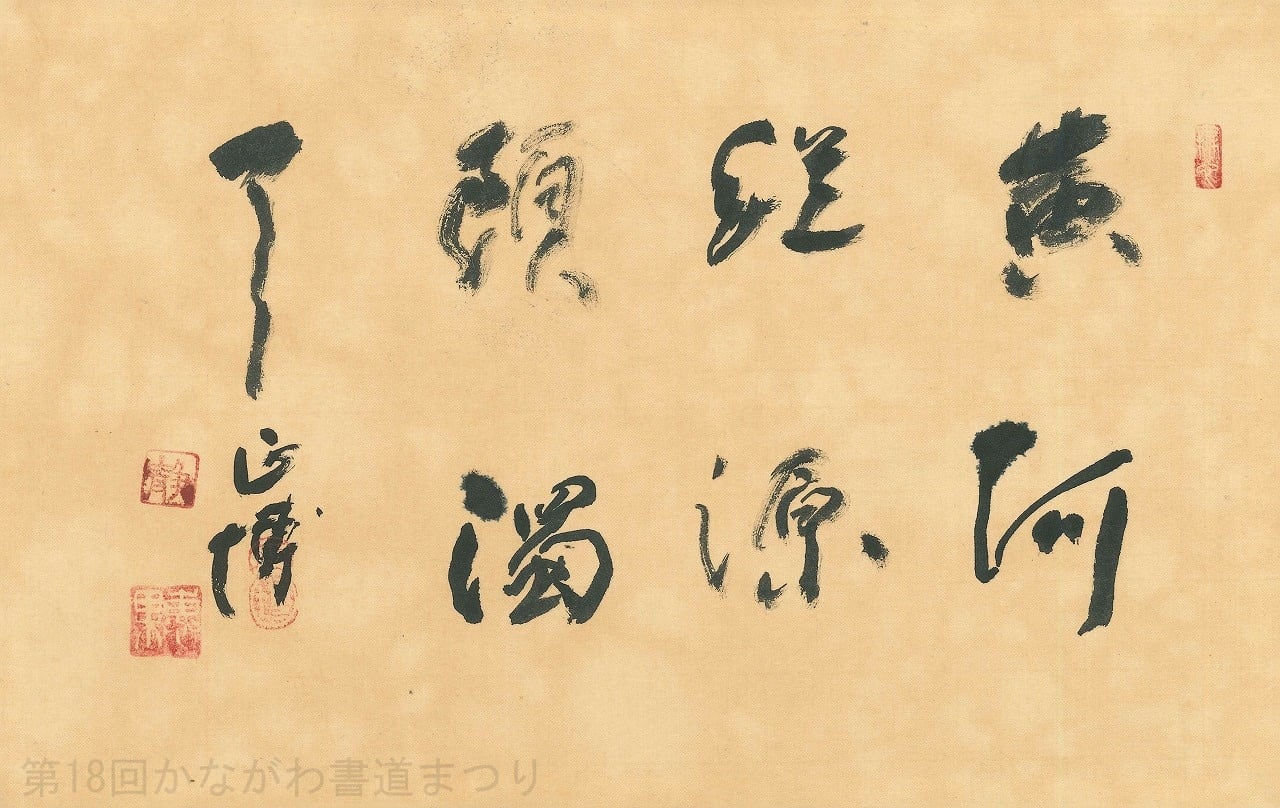 黄河
従源
頭濁
了
正博
第18回かながわ書道まつり